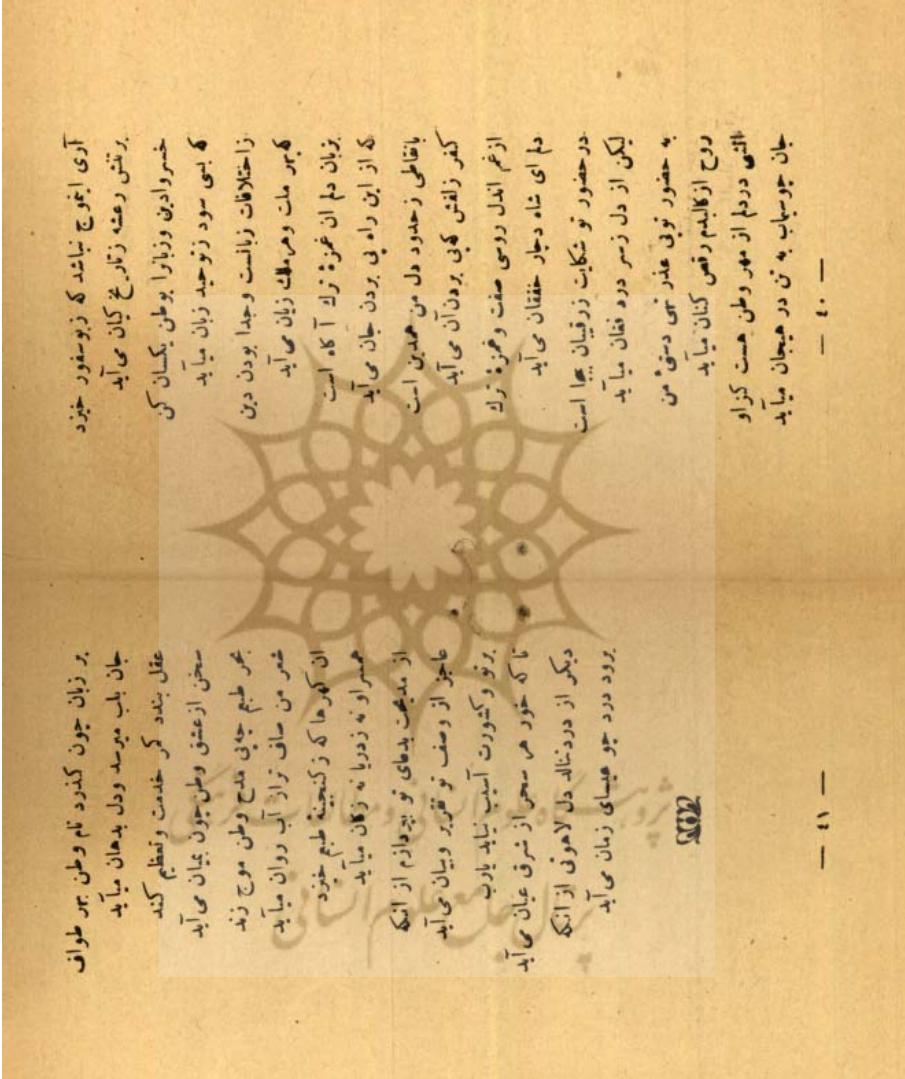 آری اینموج نباشد که زبوسفور خیزد
بر تنش رعشه ز تاریخ کیان می آید
خسروا دین وزبانرا بوطن یکسان کن
که بسی سود ز توحید زبان میآید
ز اختلافات زبانست وجدا بودن دین
کهبهر ملت وهر ملک زیان می آید
بزبان دلم ان غمزهٔ ترک آ کاه است
که از این راه پی بردن جان می آید
بانقاطی زحدود دل من همدین است
کفر زلفش که پی بردن آن می آید
از غم اندل روسی صفت وغمزهٔ ترک
دلم ای شاه دچار خفقان می آید
در حضور تو شکایت زرقیبان بیجا است
لیکن از دل زسر درد فغان میآید
به حضور تو پی عذر تهی دستی من
روح از کالبدم رقص کنان میآید
اتشی دردلم از مهر وطن هست کزاو
جان چو سیماب به تن در هیجان میآید
— ٤٠ —
بر زبان چون کذرد نام وطن بهر طواف
جان بلب میرسد ودل بدهان میآید
عقل بندد کمر خدمت وتعظیم کند
سخن از عشق وطن چون بمیان می آید
بحر طبعم چه پی مدح وطن موج زند
شعر من صاف تر از آب روان میآید
ان کهرها که زکنجینهٔ طبعم خیزد
همسراو نه زدریا نه زکان میآید
از مدیحت بدعای تو بپردازم از انکه
عاجز از وصف تو تقریر وبیان می آید
برتو وکشورت آسیب نیاید یارب
تا که خور هر سحر از شرق عیان می آید
دیکر از درد ننالد دل لاهوتی از انکه
برود درد چو عیسای زمان می آید
— ٤١ —
پژوهشگاه علوم انسانی و مطالعات فرهنگی
پرتال جامع علوم انسانی